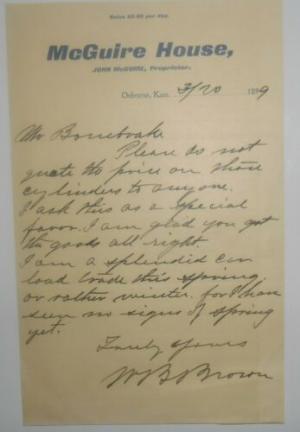 Rates $2.00 per day.
McGuire House,
JOHN McGUIRE, Proprietor.
Osborne, Kan. 3/20 1899
Mr Bonebrake
Please do not
quote the price on those
cylinders to anyone.
I ask this as a special
favor. I am glad you got
the goods all right.
I am a splendid
load trade this spring.
or rather winter. for I have
seen no signs of spring
yet.
Truly Yours
W B Brown